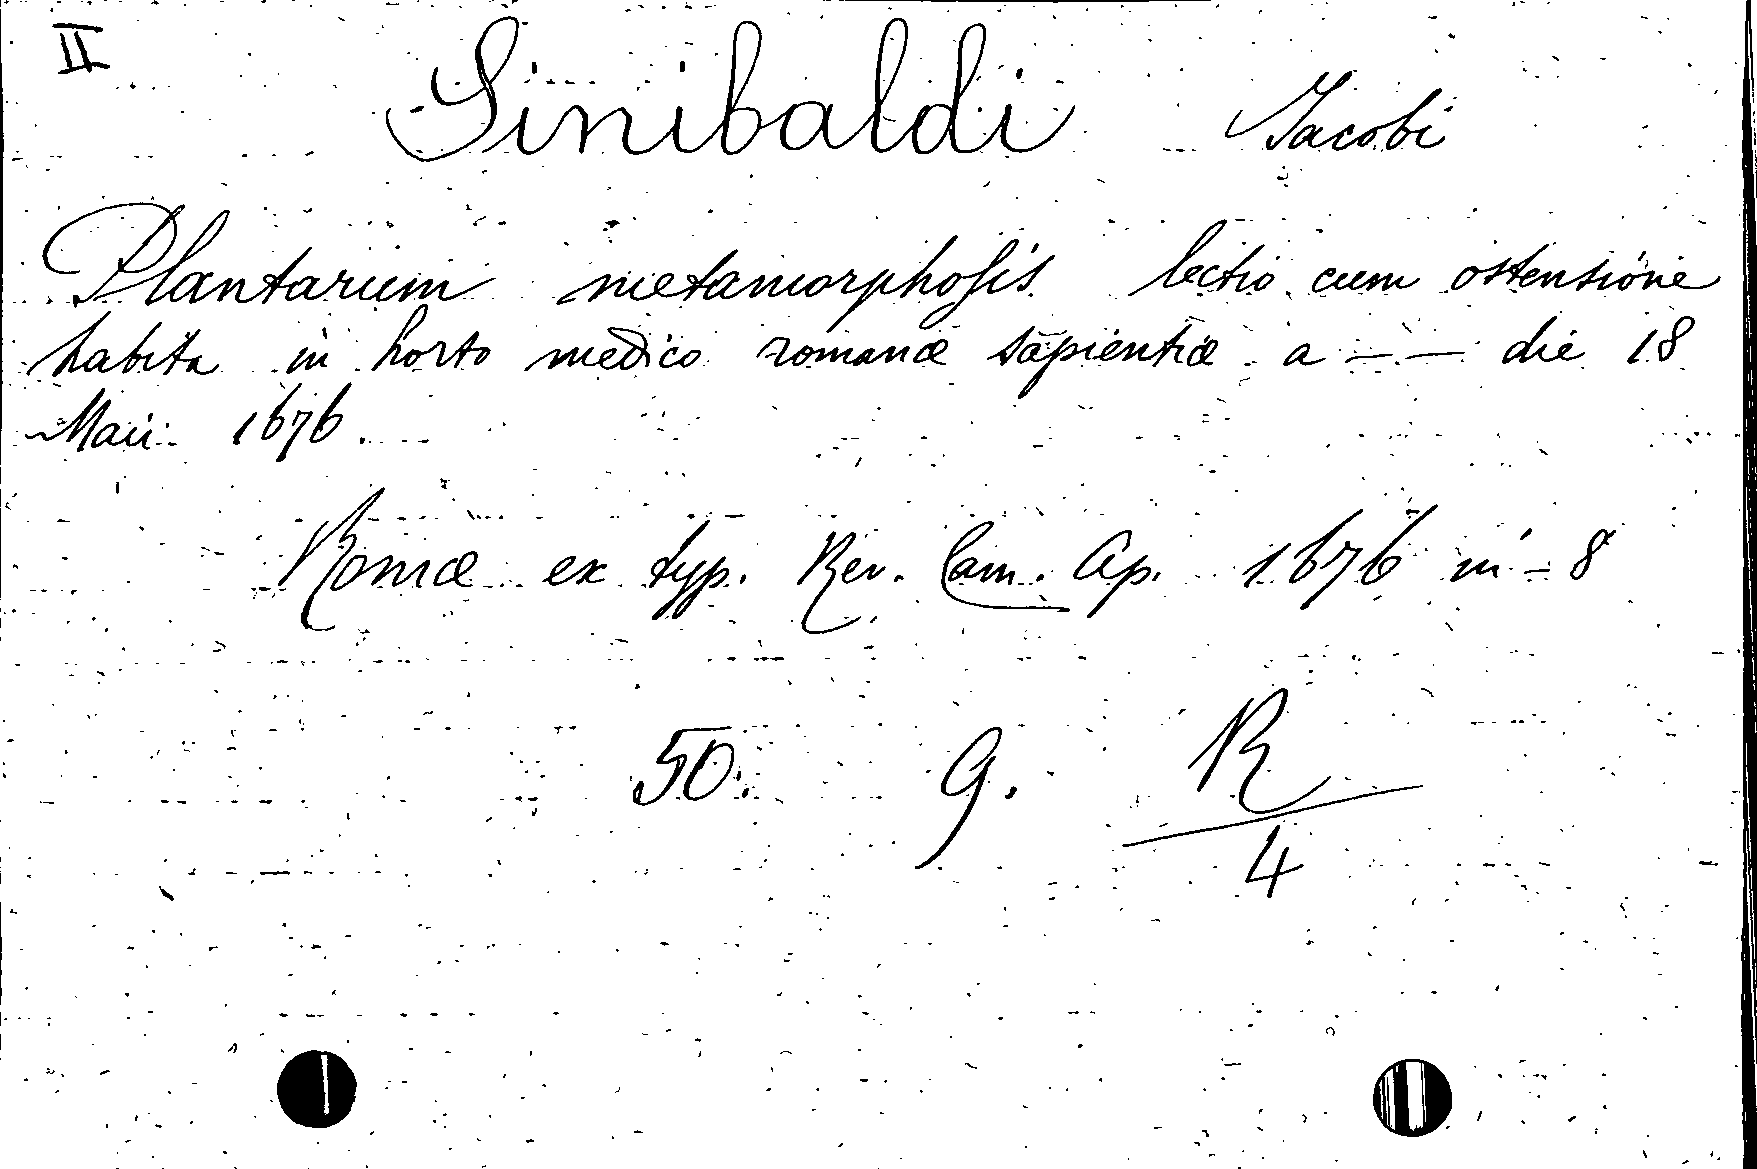 II
Sinibaldi Jacobi
Plantarum metamorphosis lectio cum ostensione
habita in horto medico romanæ sapientiæ a — — die 18
Maii 1676.
Romæ ex typ. Rev. Cam. Ap. 1676 in - 8
50. 9. R
4